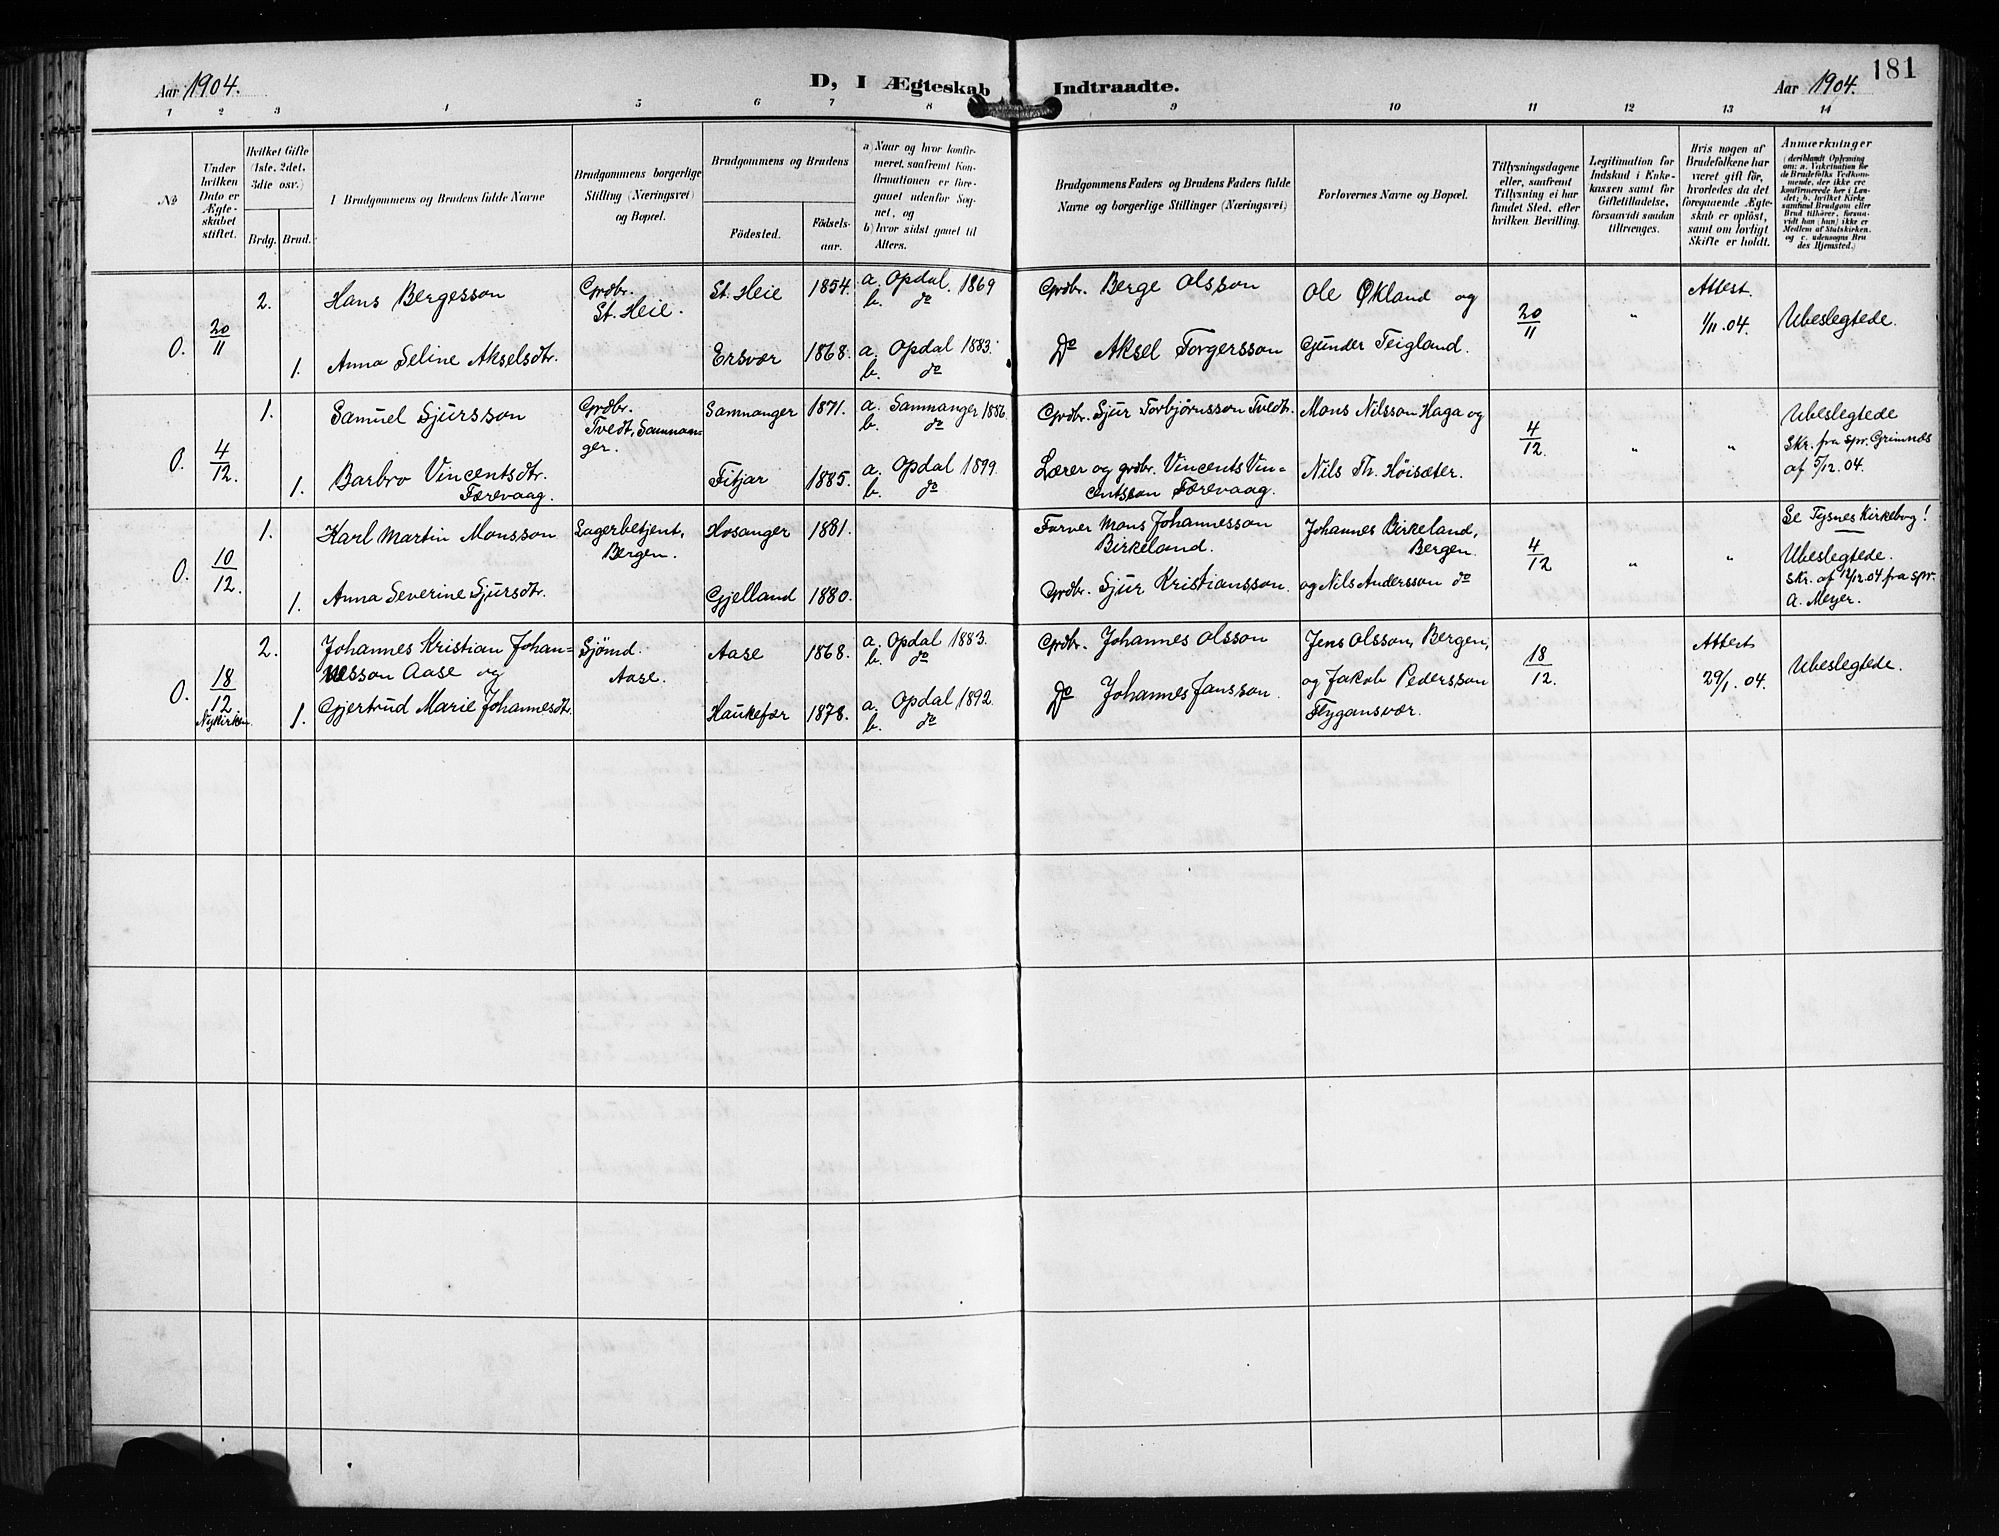 181
Aar 1904.
D, I Ægteskab Indtraadte.
Aar 1904.
1 2 3 4 5 6 7 8 9 10 11 12 13 14
No
Under hvilken Dato er Ægteskabet stiftet.
Hvilket Gifte (1ste, 2det, 3die osv.)
Brdg. Brud.
I Brudgommens og Brudens fulde Navne
Brudgommens borgerlige Stilling (Næringsvei) og Bopæl.
Brudgommens og Brudens
Fødested.
Fødselsaar.
a) Naar og hvor konfirmeret, saafremt Konfirmationen er foregaaet udenfor Sognet, og
b) hvor sidst gaaet til Alters.
Brudgommens Faders og Brudens Faders fulde Navne og borgerlige Stillinger (Næringsvei)
Forlovernes Navne og Bopæl.
Tillysningsdagene eller, saafremt Tillysning ei har fundet Sted, efter hvilken Bevilling.
Legitimation for Indskud i Enkekassen samt for Giftetilladelse, forsaavidt saadan tiltrænges.
Hvis nogen af Brudefolkene har været gift før, hvorledes da det foregaaende Ægteskab er opløst, samt om lovligt Skifte er holdt.
Anmærkninger
(deriblandt Oplysning om: a. Vakcination for de Brudefolks Vedkommende, der ikke ere konfirmerede her i Landet; b. hvilket Kirkesamfund Brudgom eller Brud tilhører, forsaavidt han (hun) ikke er Medlem af Statskirken, og c. udensogns Brudes Hjemsted.)
O. 20/11 2. Hans Bergesson Grdbr. St. Heie. St. Heie 1854. a. Opdal. 1869 b. do Grdbr. Berge Olsson Ole Økland og 20/11 " Attest 1/11. 04. Ubeslegtede.
1. Anna Seline Akselsdtr. Ersvær 1868. a. Opdal 1883. b. do Do Aksel Torgersson Gunder Teigland.
O. 4/12 1. Samuel Sjursson Grdbr. Tvedt, Samnanger. Samnanger 1871. a. Samnanger 1886. b. do Grdbr. Sjur Torbjørnsson Tvedt. Mons Nilsson Haga og 4/12. " " Ubeslegtede Skr. fra spr. Grimnæs af 5/12. 04.
1. Barbro Vincentsdtr. Færevaag. Fitjar 1885. a. Opdal 1899. b. do Lærer og grdbr. Vincents Vincentsson Færevaag. Nils Th. Høisæter.
O. 10/12. 1. Karl Martin Monsson Lagerbetjent, Bergen. Hosanger 1881. Farver Mons Johannesson Birkeland. Johannes Birkeland, Bergen. 4/12 " " Se Tysnes Kirkebog! Ubeslegtede. Skr. af 12/12. 04 fra spr. A. Meyer.
1. Anna Severine Sjursdtr. Gjelland 1880. Grdbr. Sjur Kristiansson. og Nils Andersson do
O. 18/12 Nykirken. 2. Johannes Kristian Johannesson Aase og Sjømd. Aase. Aase 1868. a. Opdal 1883. b. do Grdbr. Johannes Olsson Jens Olsson, Bergen, 18/12. Attest 29/1. 04. Ubeslegtede.
1. Gjertrud Marie Johannesdtr. Haukefær 1878. a. Opdal 1892. b. do Do Johannes Jansson. og Jakob Pedersson Flygansvær.